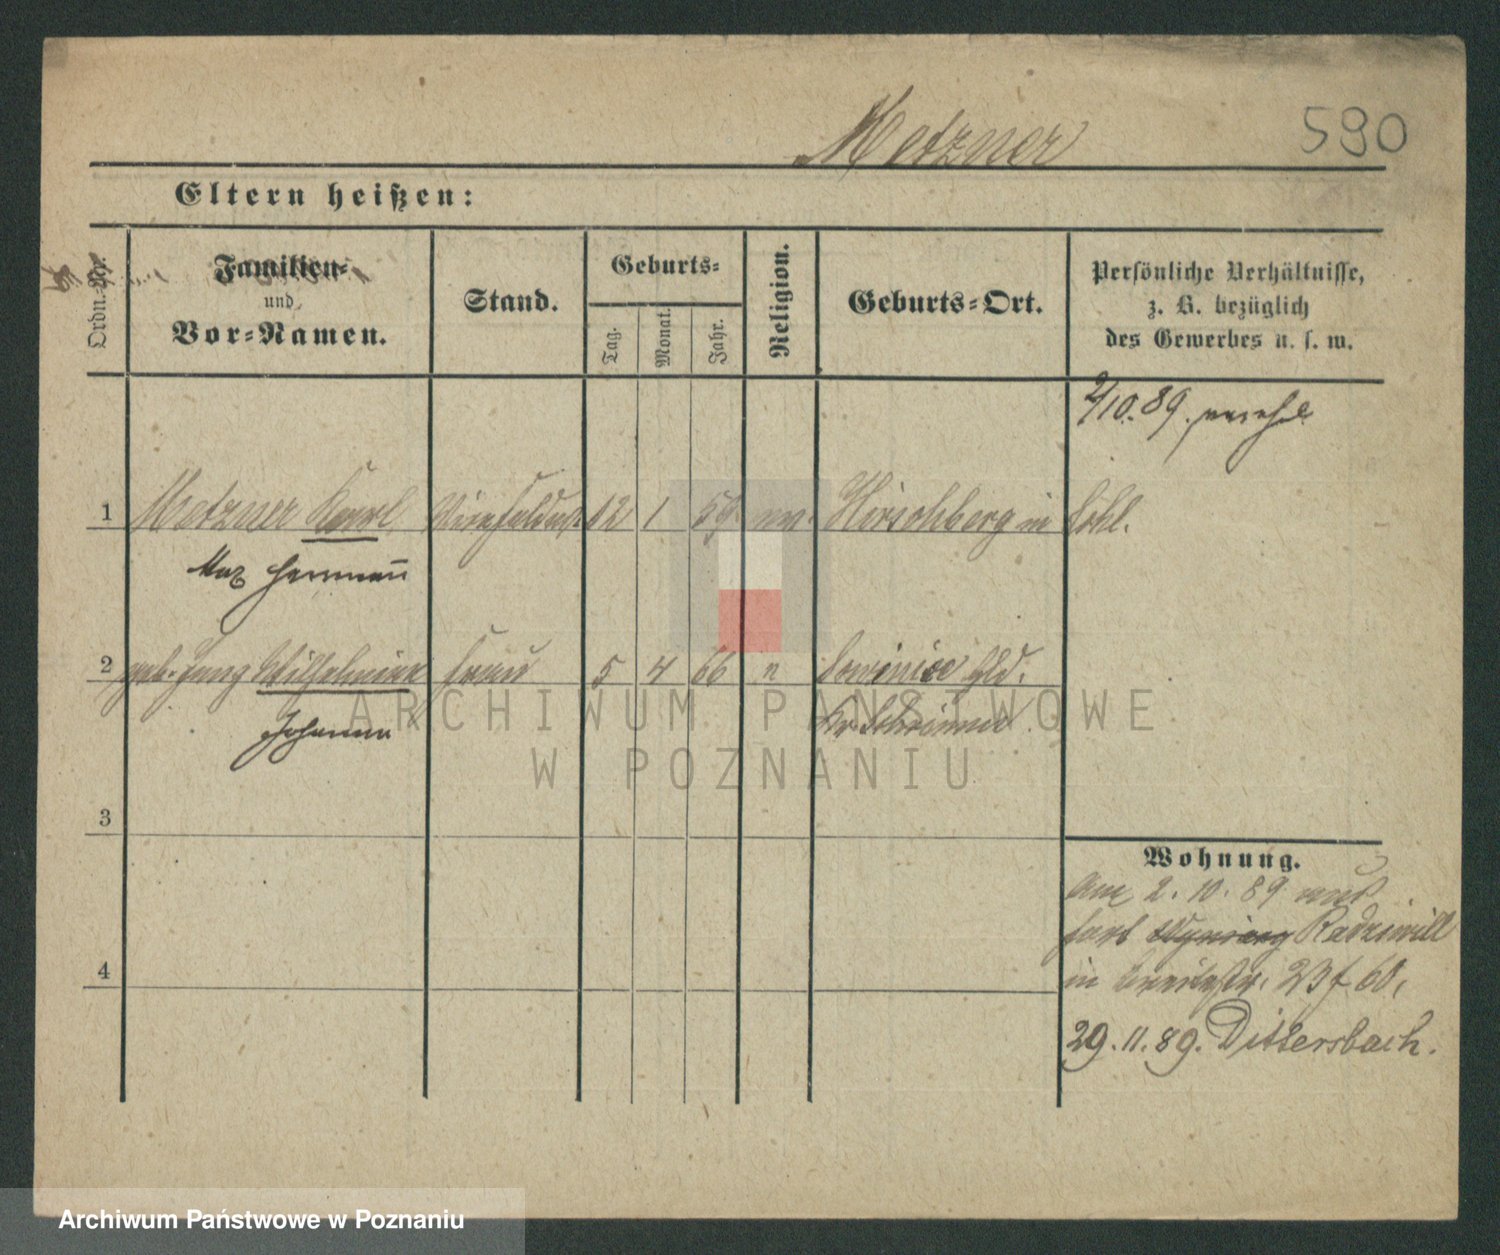 Metzner
590
Eltern heißen:
Ordn.-Nr.
Familien-
und
Vor-Namen.
Stand.
Geburts-
Tag.
Monat.
Jahr.
Religion.
Geburts-Ort.
Persönliche Verhältnisse,
z. B. bezüglich
des Gewerbes u. s. w.
2/10. 89.
1 Metzner Karl 12 1 59 Hirschberg in Schl.
Max Hermann
2 geb. Jung Wilhelmine Frau 5 4 66
Johanna
Kr. Schrimm
3
4
Wohnung.
Am 2. 10. 89
Radziwill
in 60,
29. 11. 89. Dittersbach.
ARCHIWUM PAŃSTWOWE
W POZNANIU
Archiwum Państwowe w Poznaniu